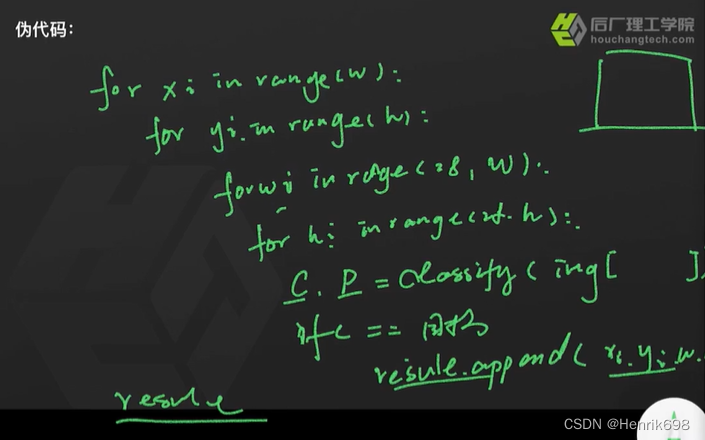 伪代码:
后厂理工学院
houchangtech.com
for xi in range(w):
for yi in range(h):
for wi in range(28, w):
for hi in range(28, h):
C, P = classify( img[ ])
if c == 目标
resule.append( xi, yi, w
resule
CSDN @Henrik698